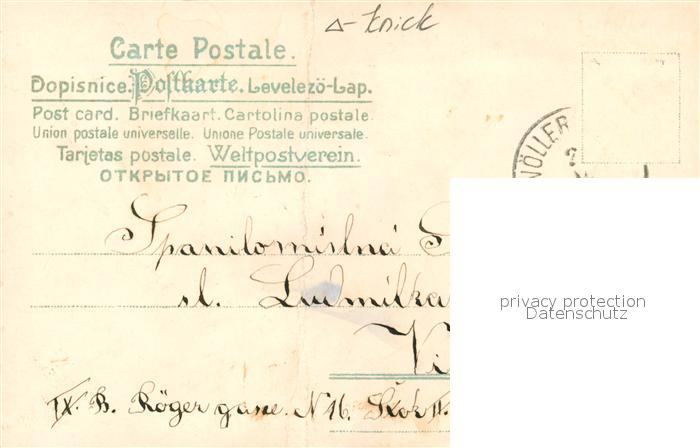 △-Knick
Carte Postale.
Dopisnice. Postkarte. Levelező-Lap.
Post card. Briefkaart. Cartolina postale.
Union postale universelle. Unione Postale universale.
Tarjetas postale. Weltpostverein.
ОТКРЫТОЕ ПИСЬМО.
NÖLLER
Spanilomislná
sl. Ludmilka
Vi
privacy protection
Datenschutz
IX. B. Röger gasse. N 16.